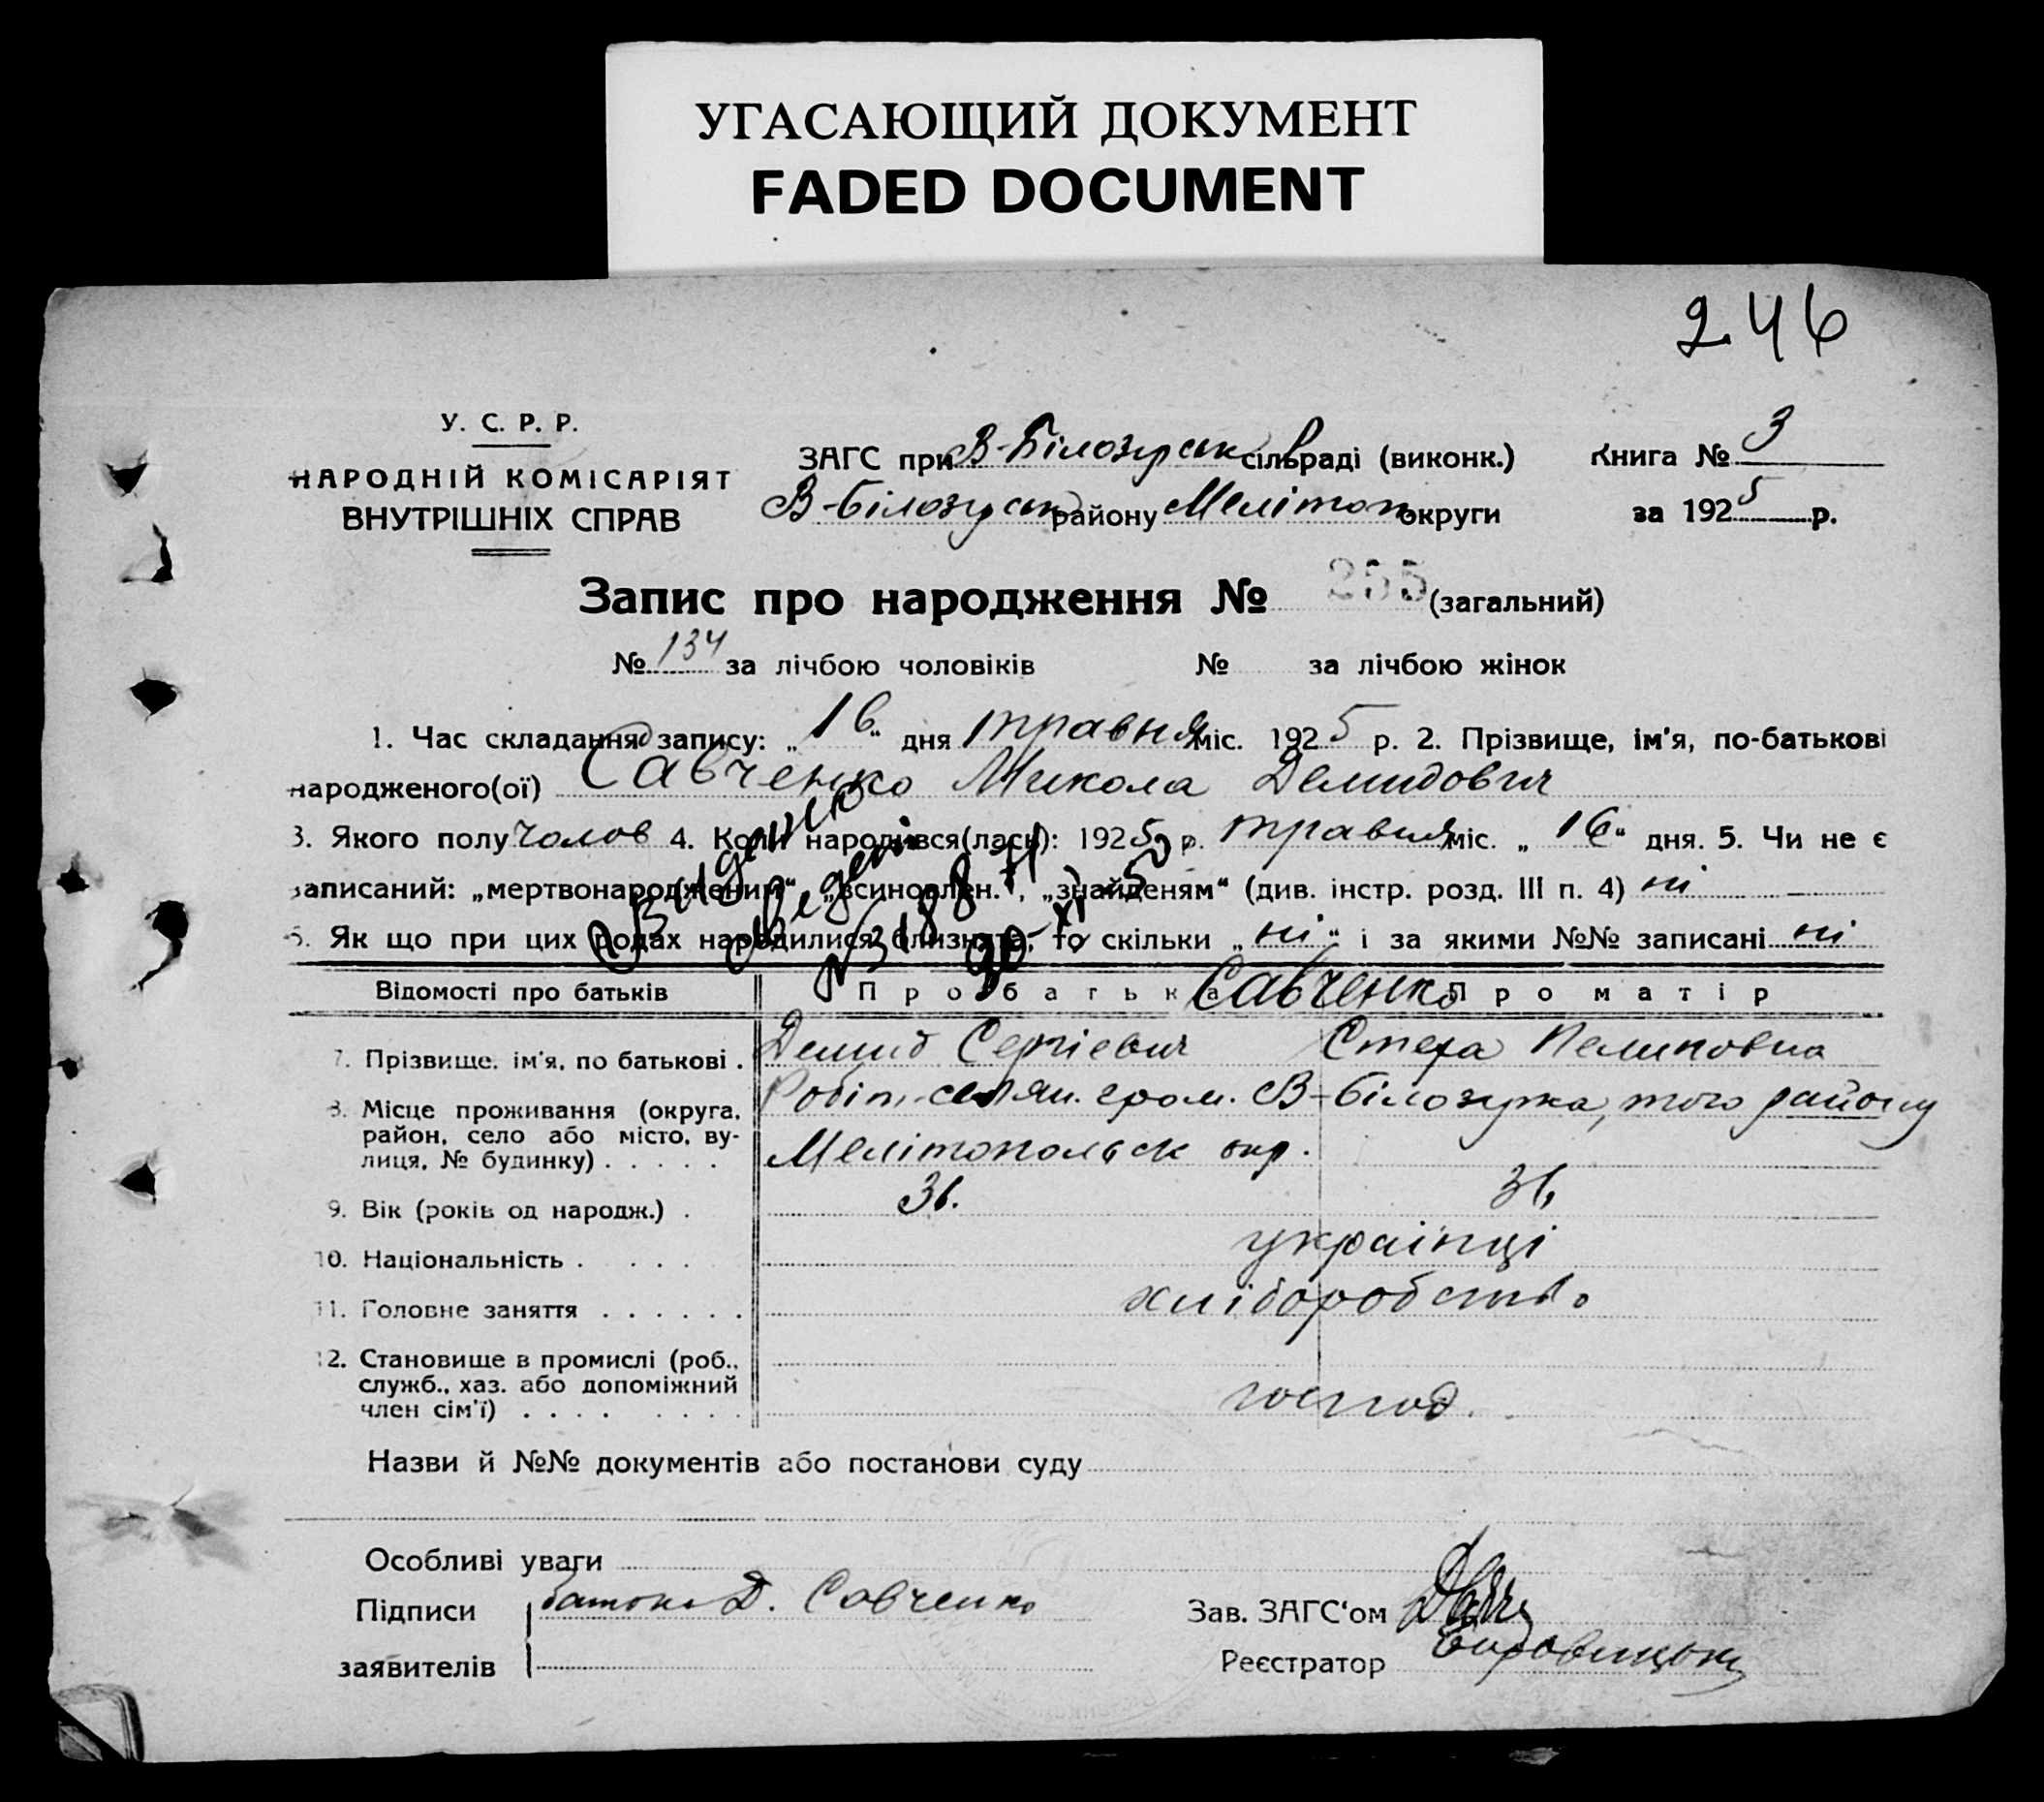 УГАСАЮЩИЙ ДОКУМЕНТ
FADED DOCUMENT
246
У. С. Р. Р.
НАРОДНІЙ КОМІСАРІЯТ
ВНУТРІШНІХ СПРАВ
ЗАГС при В-Білозірськ сільраді (виконк.)
В-Білозірськ району Мелітоп округи
Книга № 3
за 1925 р.
Запис про народження № 255 (загальний)
№ 134 за лічбою чоловіків № за лічбою жінок
1. Час складання запису: „16“ дня травня міс. 1925 р. 2. Прізвище, ім'я, по-батькові
народженого(ої) Савченко Микола Демидович
3. Якого полу чолов 4. Коли народився(лась): 1925 р. травня міс. „16“ дня. 5. Чи не є
записаний: „мертвонародженим“, „всиновлен.“, „знайденям“ (див. інстр. розд. III п. 4) ні
6. Як що при цих родах народилися близнята, то скільки „ні“ і за якими №№ записані ні
Відомості про батьків Про батька Савченко Про матір
7. Прізвище, ім'я, по батькові . Демид Сергієвич Стефа Пелиповна
8. Місце проживання (округа, Робіт.-селян. гром. В-Білозірка, того району
район, село або місто, ву-
лиця, № будинку) . . . . . Мелітопольськ окр.
9. Вік (років од народж.) . 31. 31,
10. Національність . . . . українці
11. Головне заняття . . . . . . хліборобство
12. Становище в промислі (роб.,
служб., хаз. або допоміжний
член сім'ї) . . . . . . . . господ.
Назви й №№ документів або постанови суду
Особливі уваги
Підписи батько Д. Савченко
заявителів
Зав. ЗАГС'ом
Реєстратор